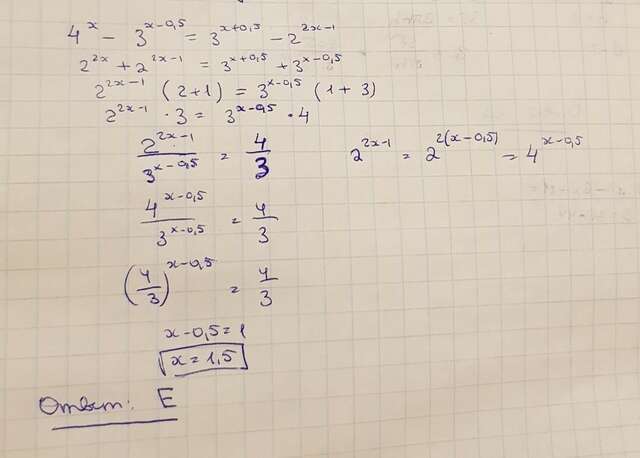 4^x - 3^{x-0,5} = 3^{x+0,5} - 2^{2x-1}
2^{2x} + 2^{2x-1} = 3^{x+0,5} + 3^{x-0,5}
2^{2x-1} (2+1) = 3^{x-0,5} (1+3)
2^{2x-1} · 3 = 3^{x-0,5} · 4
\frac{2^{2x-1}}{3^{x-0,5}} = \frac{4}{3}
2^{2x-1} = 2^{2(x-0,5)} = 4^{x-0,5}
\frac{4^{x-0,5}}{3^{x-0,5}} = \frac{4}{3}
(\frac{4}{3})^{x-0,5} = \frac{4}{3}
x-0,5=1
x=1,5
Ответ: E